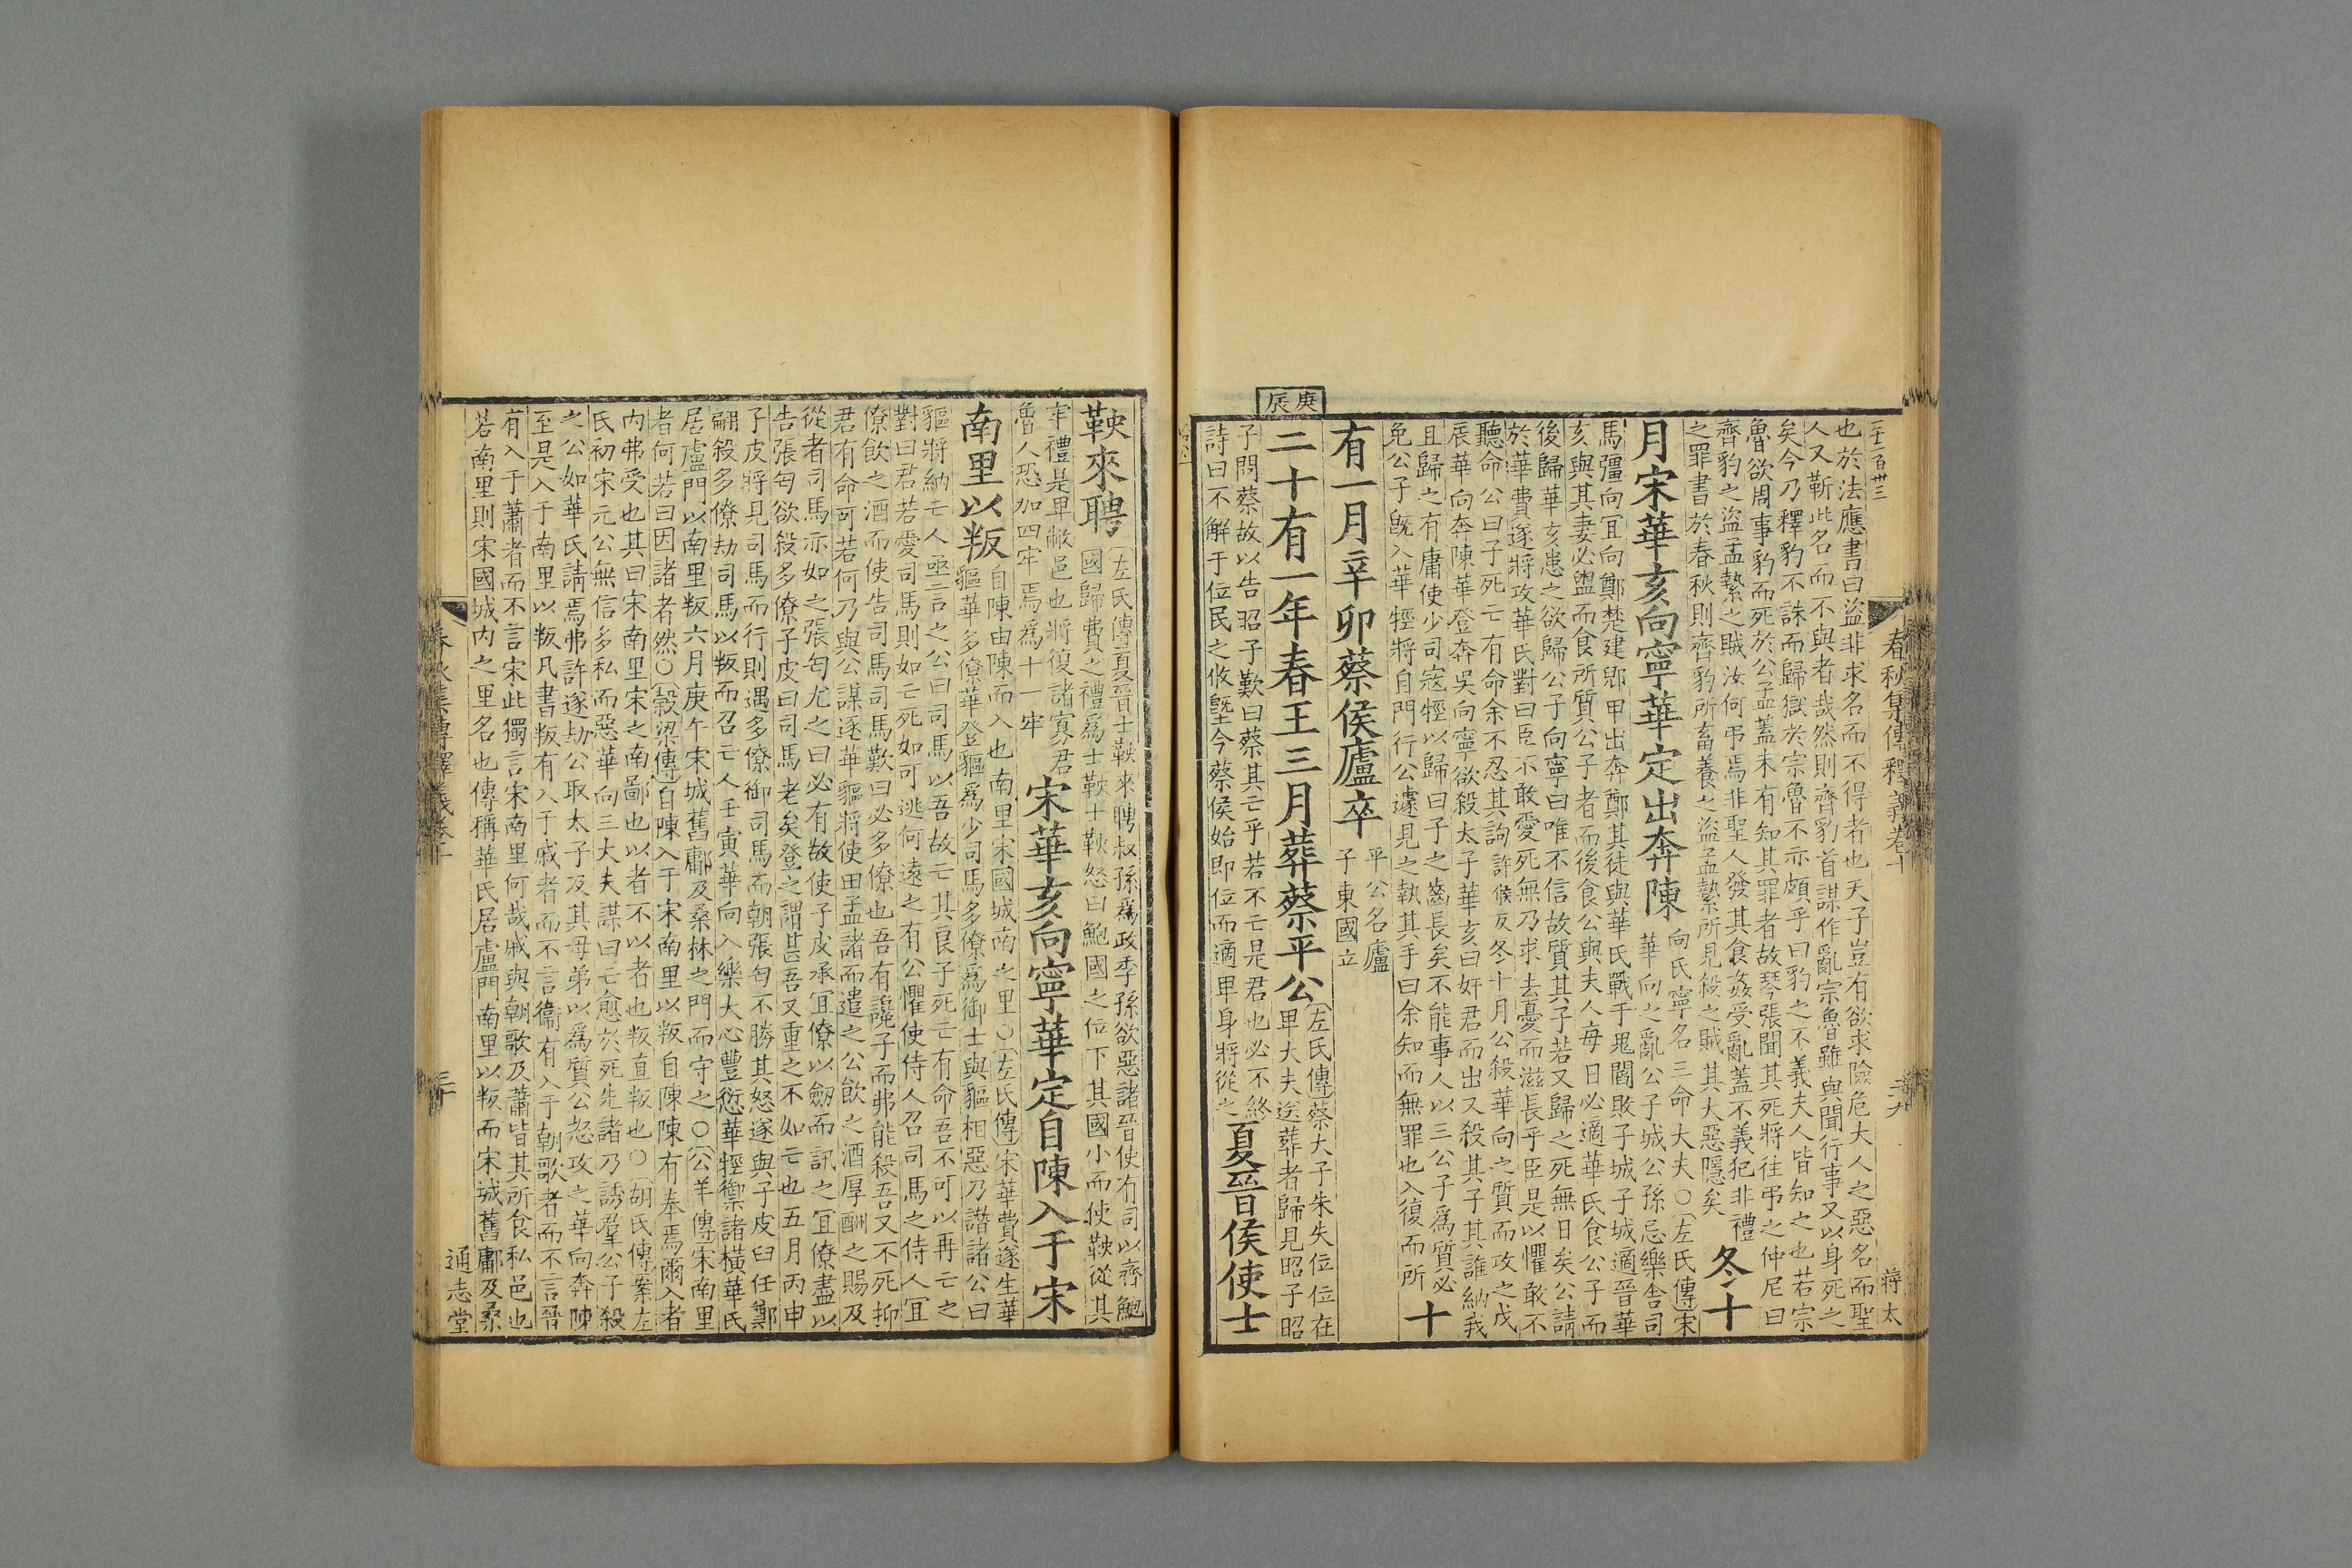 二十一百卅三
春秋集傳釋義卷十
蔣太
也於法應書曰盜非求名而不得者也天子豈有欲求險危大人之惡名而聖
人又靳此名而不與者哉然則齊豹首謀作亂宗魯雖與聞行事又以身死之
矣今乃釋豹不誅而歸獄於宗魯不亦頗乎曰豹之不義夫人皆知之也若宗
魯欲周事豹而死於公孟蓋未有知其罪者故琴張聞其死將往弔之仲尼曰
齊豹之盜孟縶之賊汝何弔焉非聖人發其食姦受亂蓋不義犯非禮
之罪書於春秋則齊豹所畜養之盜孟縶所見殺之賊其大惡隱矣
冬十
月宋華亥向寧華定出奔陳
向氏寧名三命大夫○左氏傳宋
華向之亂公子城公孫忌樂舍司
馬彊向宜向鄭楚建郳甲出奔鄭其徒與華氏戰于鬼閻敗子城子城適晉華
亥與其妻必盥而食所質公子者而後食公與夫人每日必適華氏食公子而
後歸華亥患之欲歸公子向寧曰唯不信故質其子若又歸之死無日矣公請
於華費遂將攻華氏對曰臣不敢愛死無乃求去憂而滋長乎臣是以懼敢不
聽命公曰子死亡有命余不忍其訽許候反冬十月公殺華向之質而攻之戊
辰華向奔陳華登奔吳向寧欲殺太子華亥曰奸君而出又殺其子其誰納我
且歸之有庸使少司寇牼以歸曰子之齒長矣不能事人以三公子為質必
免公子旣入華牼將自門行公遽見之執其手曰余知而無罪也入復而所
十
有一月辛卯蔡侯廬卒
平公名廬
子東國立
庚辰
二十有一年春王三月葬蔡平公
左氏傳蔡大子朱失位位在
卑大夫送葬者歸見昭子昭
子問蔡故以告昭子歎曰蔡其亡乎若不亡是君也必不終
詩曰不解于位民之攸塈今蔡侯始即位而適卑身將從之
夏晉侯使士
鞅來聘
左氏傳夏晉士鞅來聘叔孫為政季孫欲惡諸晉使有司以齊鮑
國歸費之禮為士鞅士鞅怒曰鮑國之位下其國小而使鞅從其
牢禮是卑敝邑也將復諸寡君
魯人恐加四牢焉為十一牢
宋華亥向寧華定自陳入于宋
南里以叛
自陳由陳而入也南里宋國城南之里○左氏傳宋華費遂生華
貙華多僚華登貙為少司馬多僚為御士與貙相惡乃譖諸公曰
貙將納亡人亟言之公曰司馬以吾故亡其良子死亡有命吾不可以再亡之
對曰君若愛司馬則如亡死如可逃何遠之有公懼使侍人召司馬之侍人宜
僚飲之酒而使告司馬司馬歎曰必多僚也吾有讒子而弗能殺吾又不死抑
君有命可若何乃與公謀逐華貙將使田孟諸而遣之公飲之酒厚酬之賜及
從者司馬亦如之張匄尤之曰必有故使子皮承宜僚以劒而訊之宜僚盡以
告張匄欲殺多僚子皮曰司馬老矣登之謂甚吾又重之不如亡也五月丙申
子皮將見司馬而行則遇多僚御司馬而朝張匄不勝其怒遂與子皮臼任鄭
翩殺多僚劫司馬以叛而召亡人壬寅華向入樂大心豐愆華牼禦諸橫華氏
居盧門以南里叛六月庚午宋城舊鄘及桑林之門而守之○公羊傳宋南里
者何若曰因諸者然○穀梁傳自陳入于宋南里以叛自陳陳有奉焉爾入者
內弗受也其曰宋南里宋之南鄙也以者不以者也叛直叛也○胡氏傳案左
氏初宋元公無信多私而惡華向三大夫謀曰亡愈於死先諸乃誘羣公子殺
之公如華氏請焉弗許遂劫公取太子及其母弟以為質公怒攻之華向奔陳
至是入于南里以叛凡書叛有入于戚者而不言衞有入于朝歌者而不言晉
有入于蕭者而不言宋此獨言宋南里何哉戚與朝歌及蕭皆其所食私邑也
若南里則宋國城內之里名也傳稱華氏居盧門南里以叛而宋城舊鄘及桑
春秋集傳釋義卷十
三十
通志堂